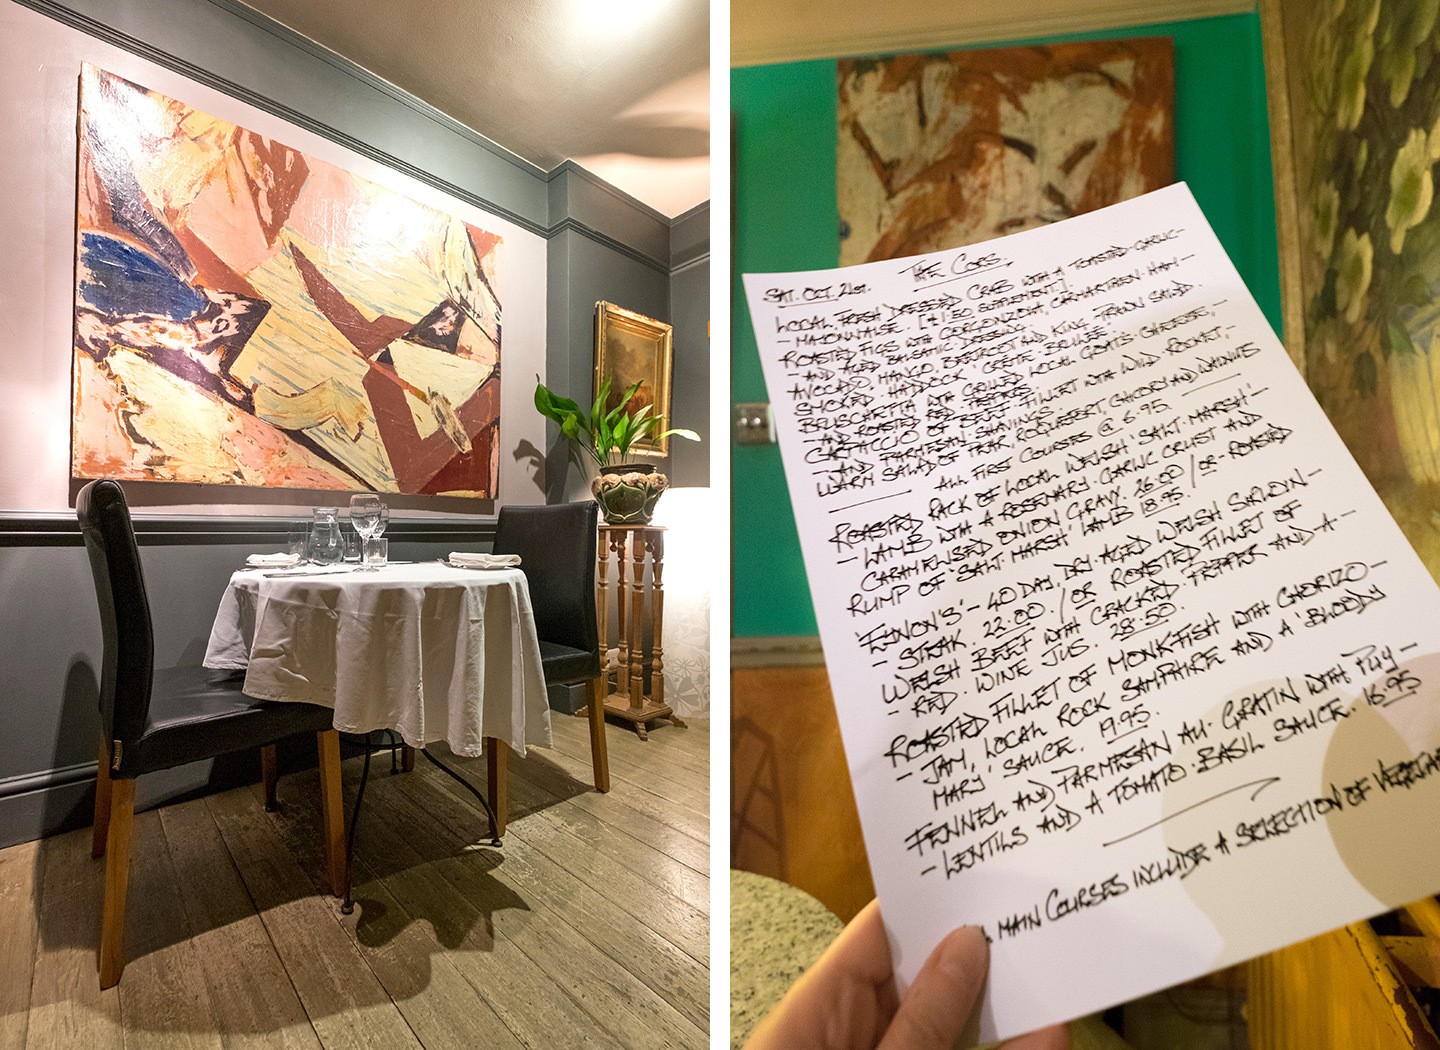 THE CORS.
SAT. OCT. 21ST.
LOCAL FRESH DRESSED CRAB WITH A TOASTED-GARLIC-
- MAYONNAISE. [+1.50 SUPPLEMENT].
ROASTED FIGS WITH GORGONZOLA, CARMARTHEN HAM -
- AND AGED BALSAMIC DRESSING.
AVOCADO, MANGO, BEETROOT AND KING PRAWN SALAD.
SMOKED HADDOCK 'CRÈME BRULEE'.
BRUSCHETTA WITH GRILLED LOCAL GOATS CHEESE,
- AND ROASTED RED PEPPERS.
CARPACCIO OF BEEF FILLET WITH WILD ROCKET,
- AND PARMESAN SHAVINGS.
WARM SALAD OF PEAR, ROQUEFORT, CHICORY AND WALNUTS
ALL FIRST COURSES @ 6.95.
ROASTED RACK OF LOCAL WELSH 'SALT MARSH' -
- LAMB WITH A ROSEMARY-GARLIC CRUST AND
CARAMELISED ONION GRAVY. 26.00 / OR ROASTED
RUMP OF 'SALT MARSH' LAMB 18.95.
'EYNON'S' - 40 DAY DRY AGED WELSH SIRLOIN -
- STEAK. 22.00. / OR ROASTED FILLET OF
WELSH BEEF WITH CRACKED PEPPER AND A -
- RED WINE JUS. 28.50.
ROASTED FILLET OF MONKFISH WITH CHORIZO -
- JAM, LOCAL ROCK SAMPHIRE AND A 'BLOODY
MARY' SAUCE. 19.95.
FENNEL AND PARMESAN AU GRATIN WITH PUY -
- LENTILS AND A TOMATO-BASIL SAUCE. 16.95
MAIN COURSES INCLUDE A SELECTION OF